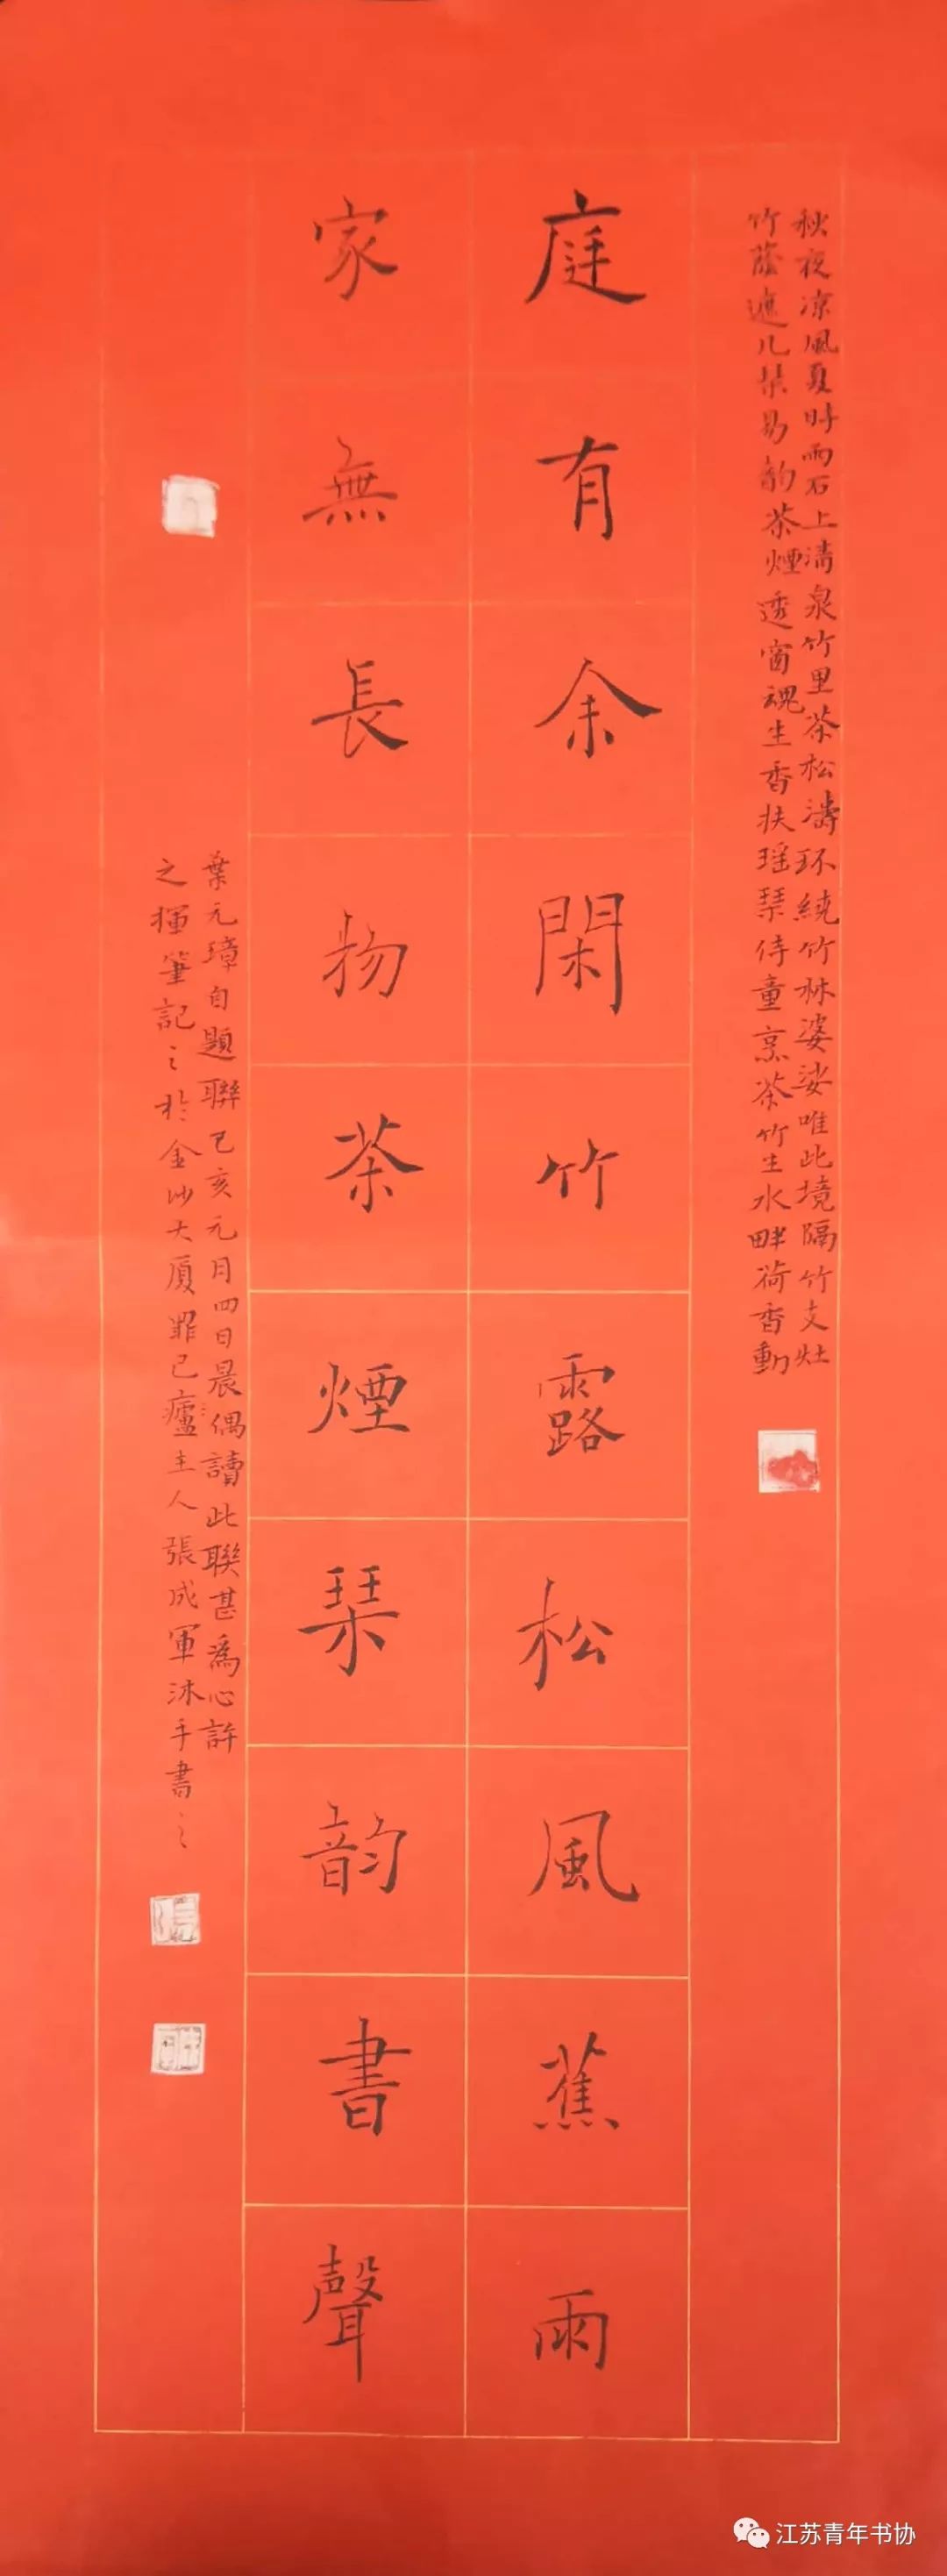 秋夜凉風夏時雨石上清泉竹里茶松濤环繞竹林婆娑唯此境隔竹支灶
竹蔭遮几琹易韵茶煙透窗魂生香扶瑶琹侍童烹茶竹生水畔荷香動
庭有余閑竹露松風蕉雨
家無長物茶煙琹韵書聲
葉元璋自題聯己亥元月四日晨偶讀此聯甚為心許
之揮筆記之於金沙大厦罪己廬主人張成軍沐手書之
江苏青年书协